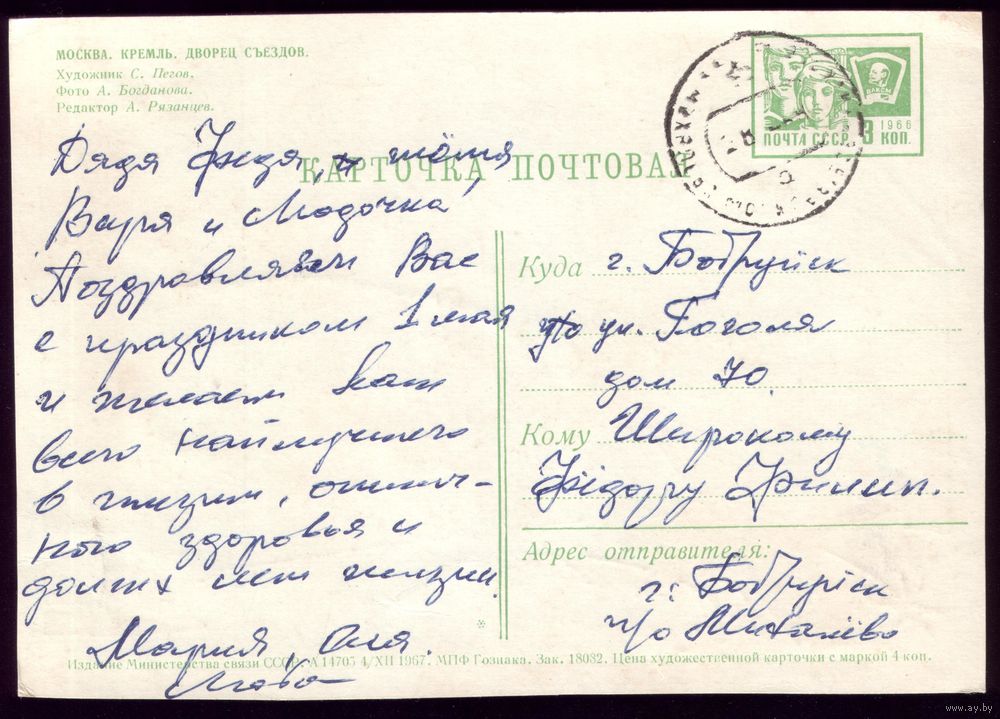 МОСКВА. КРЕМЛЬ. ДВОРЕЦ СЪЕЗДОВ.
Художник С. Пегов.
Фото А. Богданова.
Редактор А. Рязанцев.
ПОЧТА СССР
1966
3 КОП.
ВЛКСМ
КАРТОЧКА ПОЧТОВАЯ
Дядя Федя, тётя
Варя и
Поздравляем Вас
с праздником 1 мая
и желаем вам
всего наилучшего
в жизни, отлич-
ного здоровья и
долгих лет жизни.
Мария, Оля.
Куда г. Бобруйск
ул. Гоголя
дом 70.
Кому Широкому
Фёдору Филип.
Адрес отправителя:
г. Бобруйск
п/о Михалёво
Издание Министерства связи СССР. А 14703 4/XII 1967. МПФ Гознака. Зак. 18082. Цена художественной карточки с маркой 4 коп.
www.ay.by